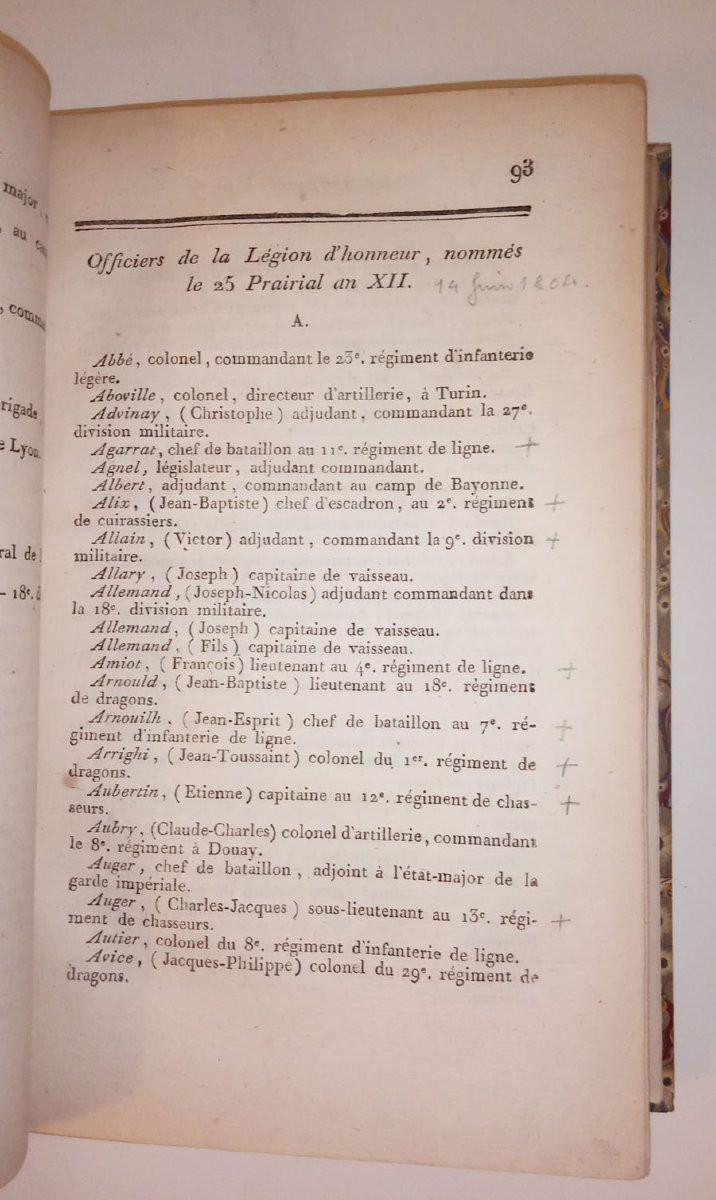 major
au
comm
rigade
e Lyon.
ral de
— 18e.
93
Officiers de la Légion d'honneur, nommés
le 25 Prairial an XII. 14 Juin 1804.
A.
Abbé, colonel, commandant le 23e. régiment d'infanterie
légère.
Aboville, colonel, directeur d'artillerie, à Turin.
Advinay, (Christophe) adjudant, commandant la 27e.
division militaire.
Agarrat, chef de bataillon au 11e. régiment de ligne. +
Agnel, législateur, adjudant commandant.
Albert, adjudant, commandant au camp de Bayonne.
Alix, (Jean-Baptiste) chef d'escadron, au 2e. régiment +
de cuirassiers.
Allain, (Victor) adjudant, commandant la 9e. division +
militaire.
Allary, (Joseph) capitaine de vaisseau.
Allemand, (Joseph-Nicolas) adjudant commandant dans
la 18e. division militaire.
Allemand, (Joseph) capitaine de vaisseau.
Allemand, (Fils) capitaine de vaisseau.
Amiot, (François) lieutenant au 4e. régiment de ligne. +
Arnould, (Jean-Baptiste) lieutenant au 18e. régiment
de dragons.
Arnouilh, (Jean-Esprit) chef de bataillon au 7e. ré- +
giment d'infanterie de ligne.
Arrighi, (Jean-Toussaint) colonel du 1er. régiment de +
dragons.
Aubertin, (Etienne) capitaine au 12e. régiment de chas- +
seurs.
Aubry, (Claude-Charles) colonel d'artillerie, commandant
le 8e. régiment à Douay.
Auger, chef de bataillon, adjoint à l'état-major de la
garde impériale.
Auger, (Charles-Jacques) sous-lieutenant au 13e. régi- +
ment de chasseurs.
Autier, colonel du 8e. régiment d'infanterie de ligne.
Avice, (Jacques-Philippe) colonel du 29e. régiment de
dragons.